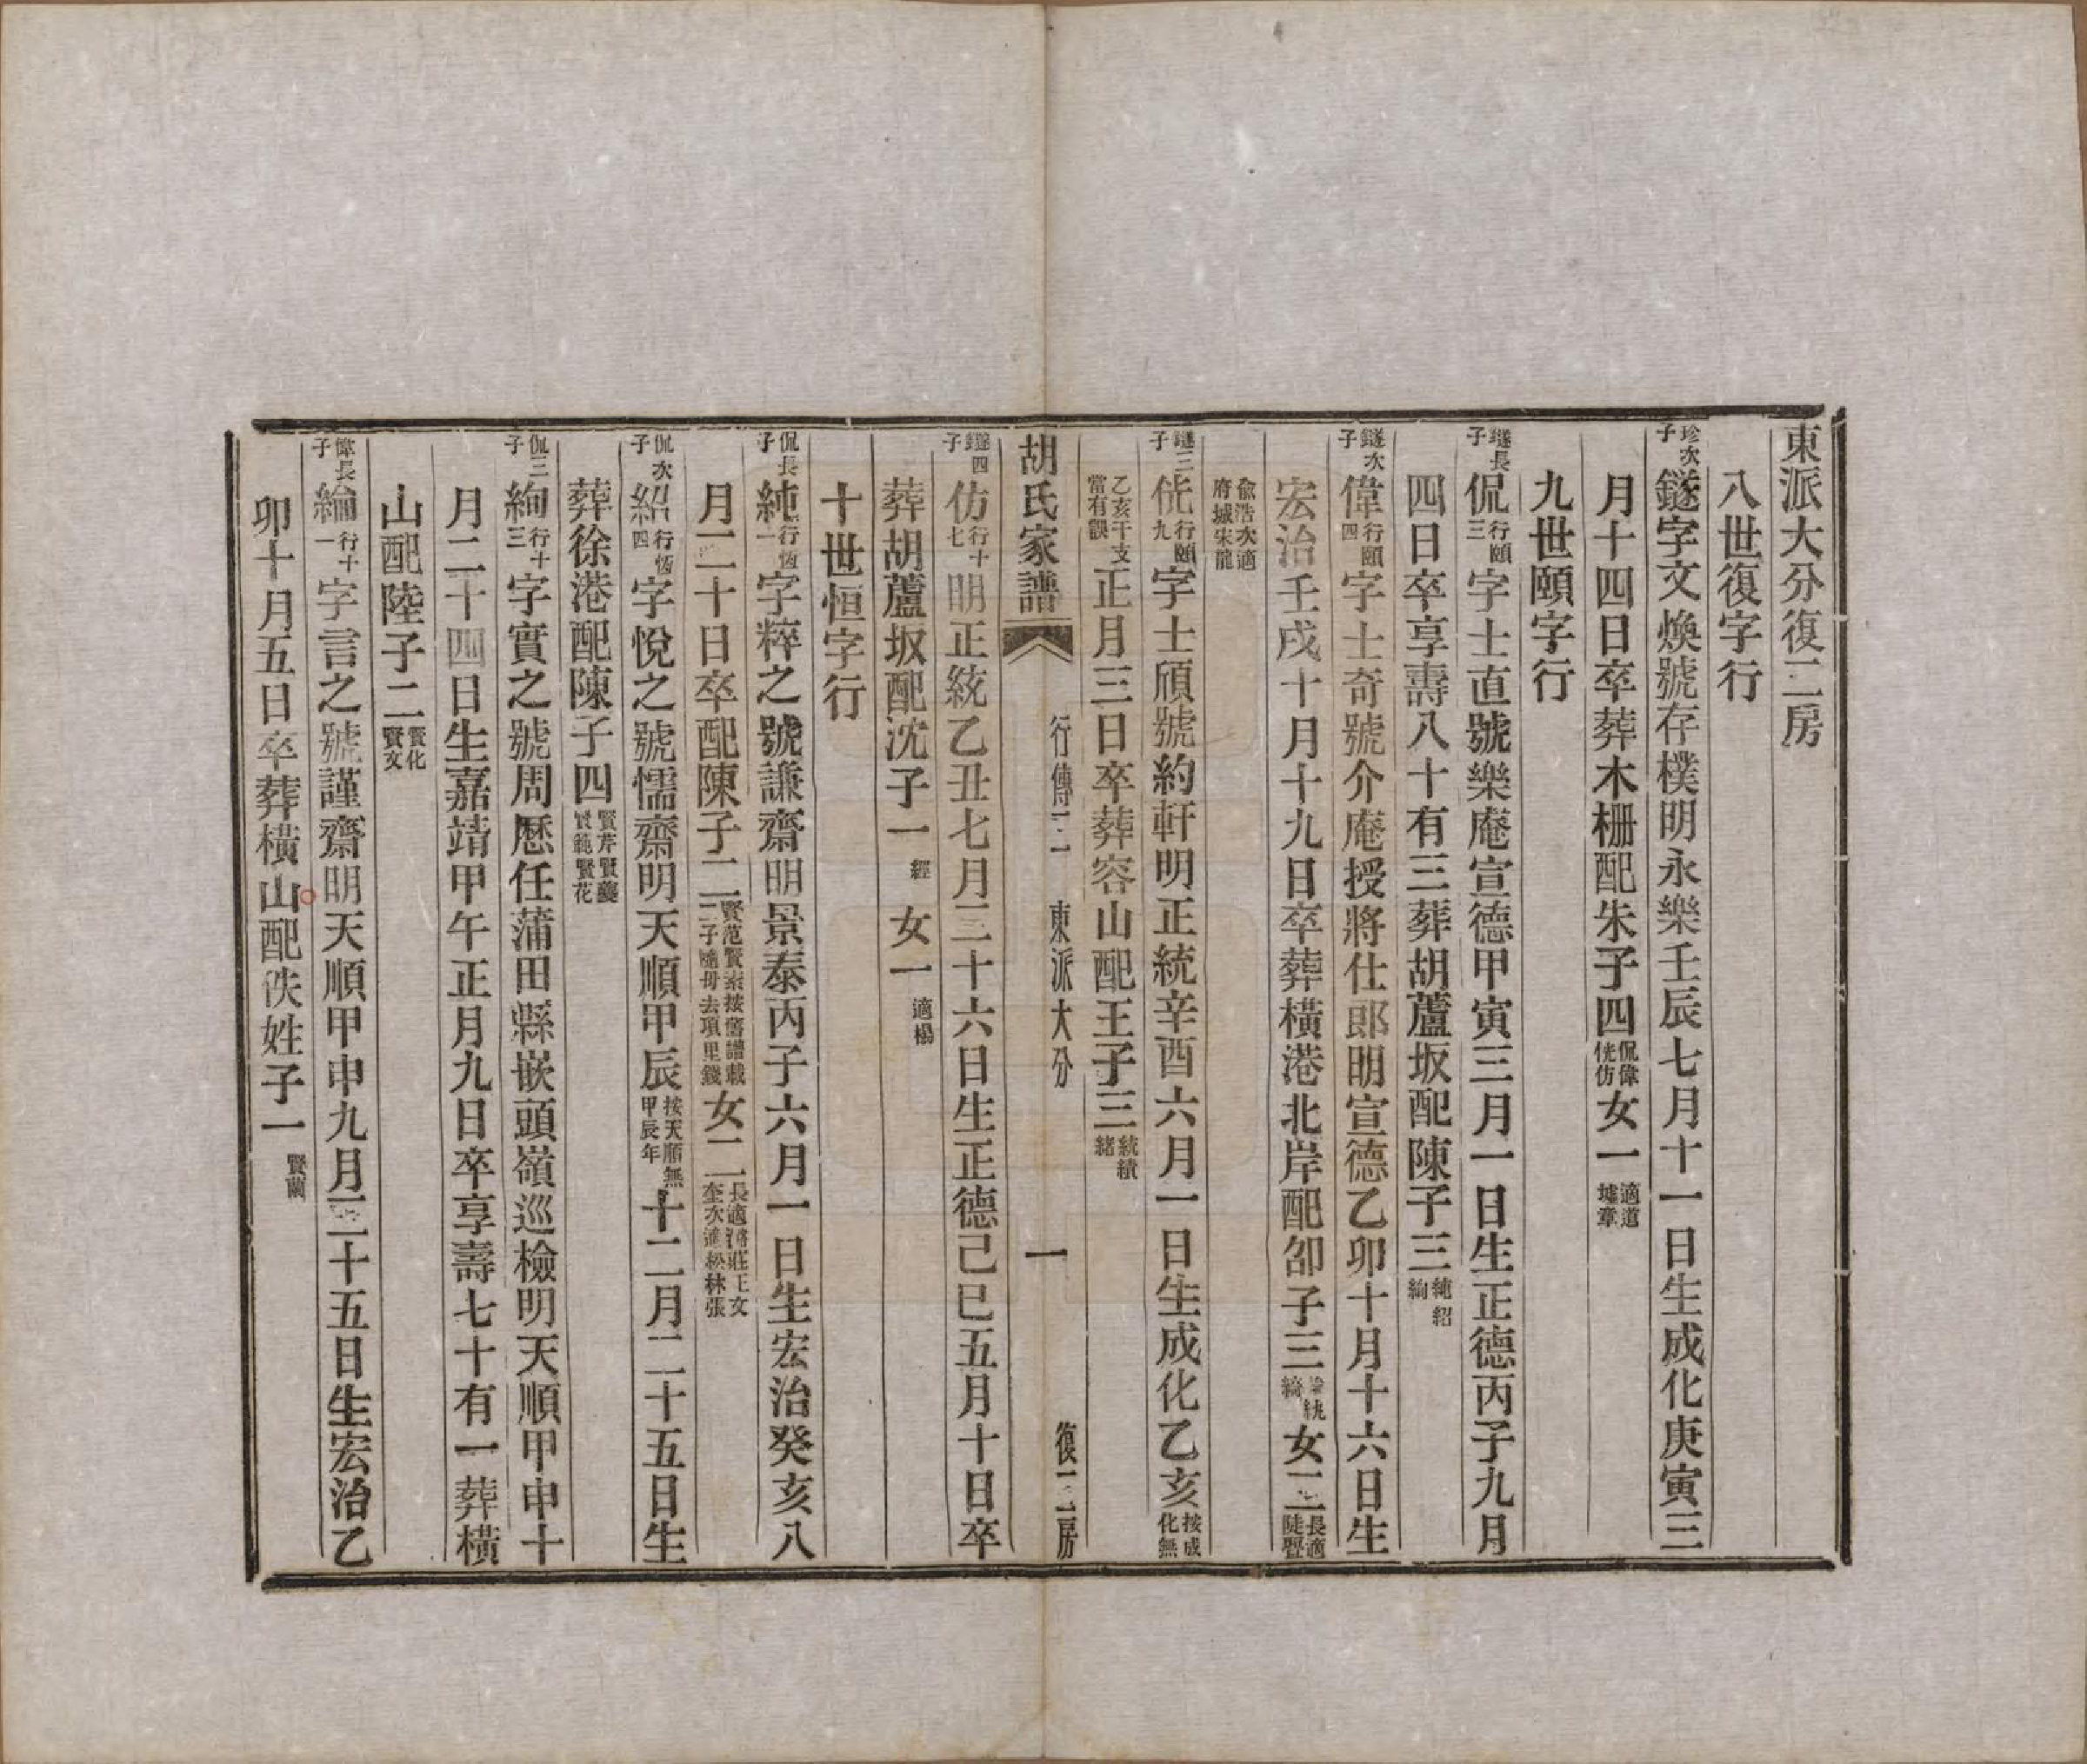 東派大分復二房
八世復字行
珍次子鐩字文煥號存樸明永樂壬辰七月十一日生成化庚寅三
月十四日卒葬木柵配朱子四侃偉侊仿女一適道墟章
九世頤字行
鐩長子侃行頤三字士直號樂庵宣德甲寅三月一日生正德丙子九月
四日卒享壽八十有三葬胡蘆坂配陳子三純紹絢
鐩次子偉行頤四字士奇號介庵授將仕郎明宣德乙卯十月十六日生
宏治壬戌十月十九日卒葬橫港北岸配邵子三綸絖綺女二長適陡亹
俞浩次適府城宋龍
鐩三子侊行頤九字士頎號約軒明正統辛酉六月一日生成化乙亥按成化無
乙亥干支當有誤正月三日卒葬容山配王子三統績緒
胡氏家譜 行傳二 東派大分 一 復二房
鐩四子仿行十七明正統乙丑七月二十六日生正德己巳五月十日卒
葬胡蘆坂配沈子一經女一適楊
十世恒字行
侃長子純行恆一字粹之號謙齋明景泰丙子六月一日生宏治癸亥八
月二十日卒配陳子二賢范賢索按舊譜載二子隨母去項里錢女二長適湝莊王文奎次適松林張
侃次子紹行恆四字悅之號懦齋明天順甲辰按天順無甲辰年十二月二十五日生
葬徐港配陳子四賢芹賢夔賢範賢花
侃三子絢行十三字實之號周歷任蒲田縣嵌頭嶺巡檢明天順甲申十
月二十四日生嘉靖甲午正月九日卒享壽七十有一葬橫
山配陸子二賢化賢文
偉長子綸行十一字言之號謹齋明天順甲申九月二十五日生宏治乙
卯十月五日卒葬橫山配佚姓子一賢蘭